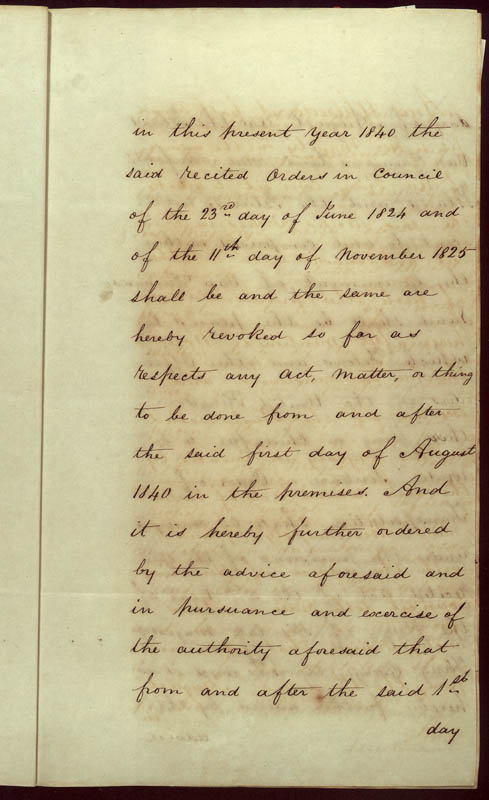 in this present year 1840 the
said recited Orders in Council
of the 23rd day of June 1824 and
of the 11th day of November 1825
shall be and the same are
hereby revoked so far as
respects any act, matter, or thing
to be done from and after
the said first day of August
1840 in the premises. And
it is hereby further ordered
by the advice aforesaid and
in pursuance and exercise of
the authority aforesaid that
from and after the said 1st
day